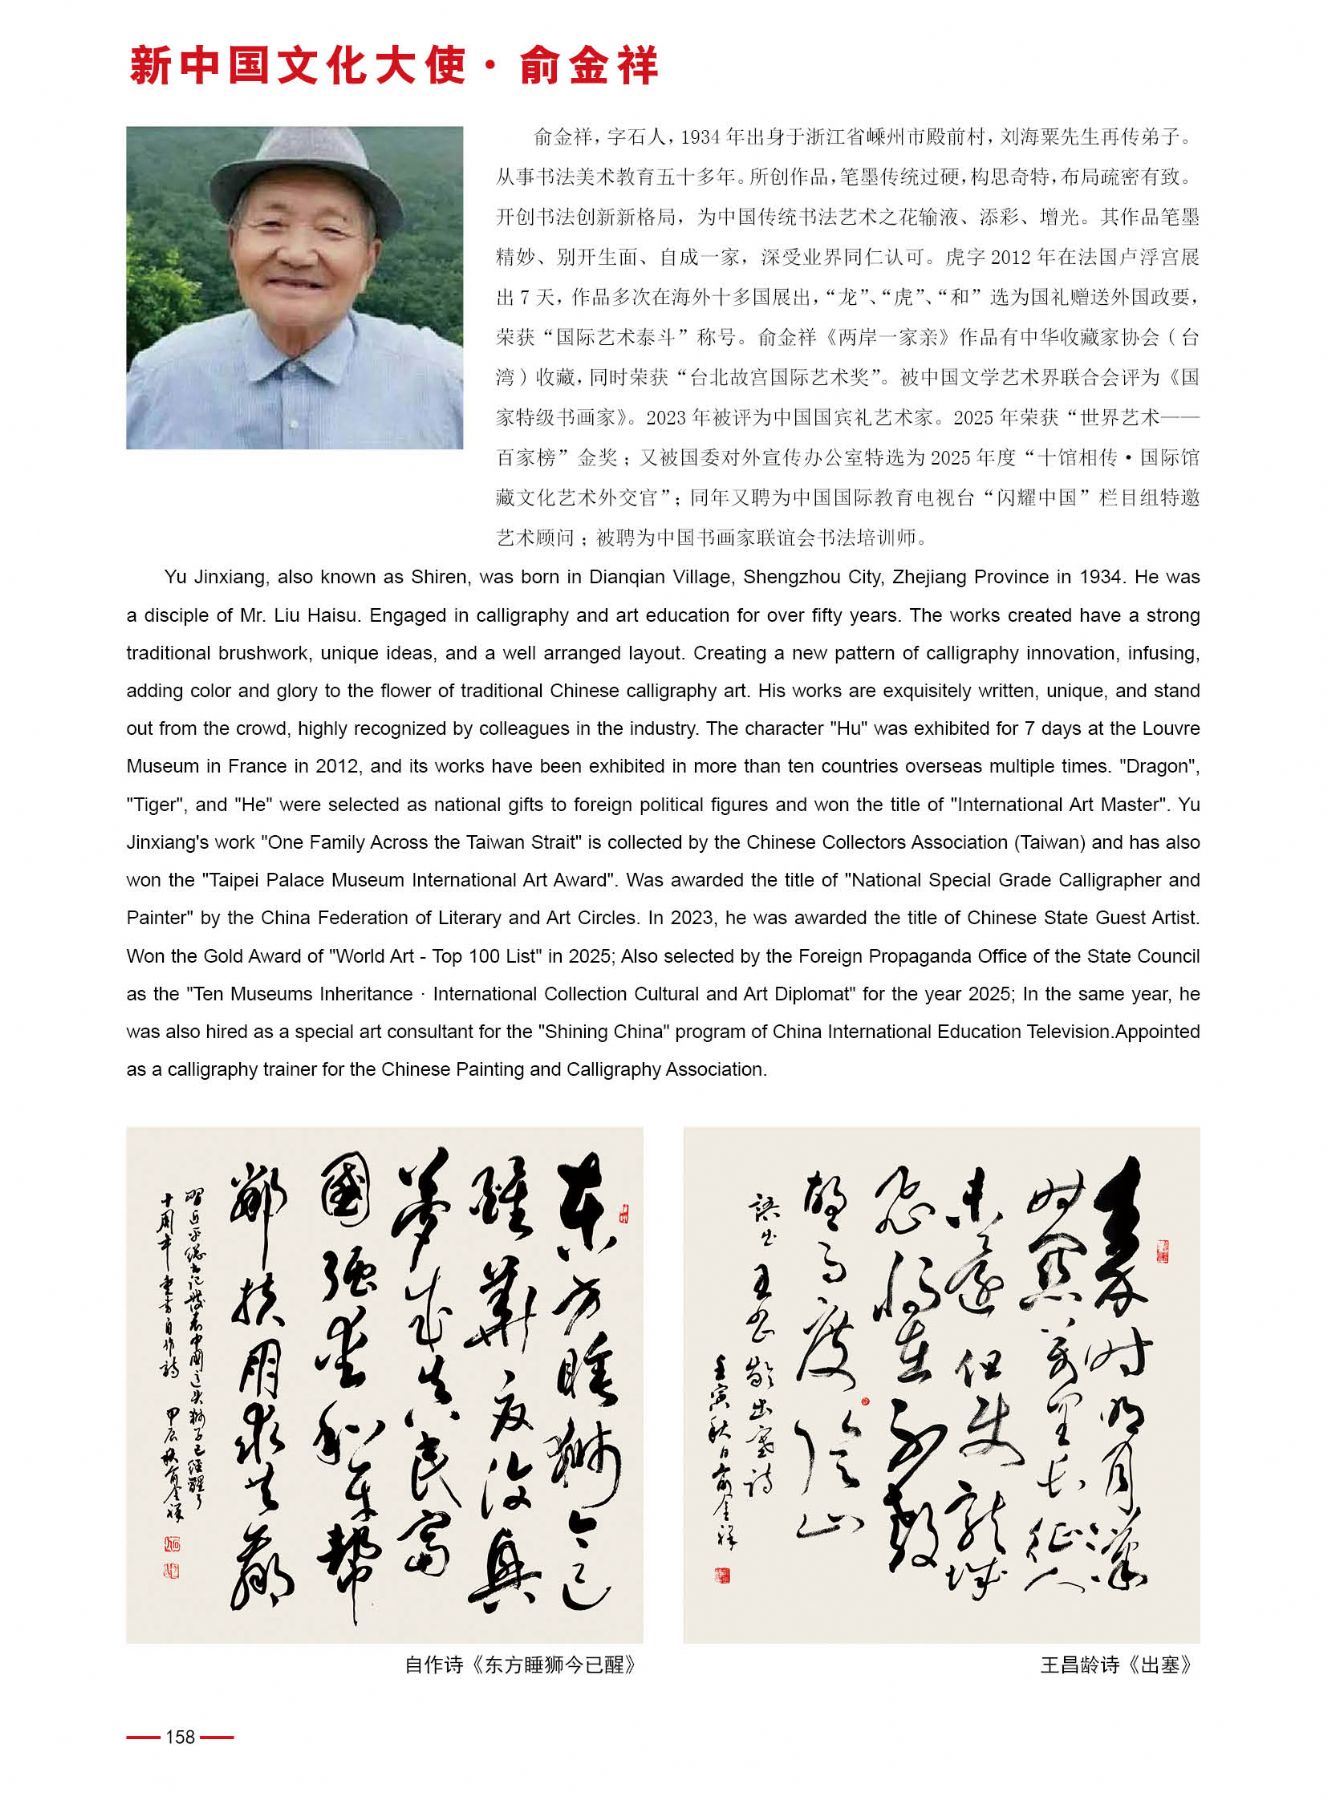 新中国文化大使·俞金祥
俞金祥，字石人，1934 年出身于浙江省嵊州市殿前村，刘海粟先生再传弟子。
从事书法美术教育五十多年。所创作品，笔墨传统过硬，构思奇特，布局疏密有致。
开创书法创新新格局，为中国传统书法艺术之花输液、添彩、增光。其作品笔墨
精妙、别开生面、自成一家，深受业界同仁认可。虎字 2012 年在法国卢浮宫展
出 7 天，作品多次在海外十多国展出，“龙”、“虎”、“和”选为国礼赠送外国政要，
荣获“国际艺术泰斗”称号。俞金祥《两岸一家亲》作品有中华收藏家协会（台
湾）收藏，同时荣获“台北故宫国际艺术奖”。被中国文学艺术界联合会评为《国
家特级书画家》。2023 年被评为中国国宾礼艺术家。2025 年荣获“世界艺术——
百家榜”金奖；又被国委对外宣传办公室特选为 2025 年度“十馆相传·国际馆
藏文化艺术外交官”；同年又聘为中国国际教育电视台“闪耀中国”栏目组特邀
艺术顾问；被聘为中国书画家联谊会书法培训师。
Yu Jinxiang, also known as Shiren, was born in Dianqian Village, Shengzhou City, Zhejiang Province in 1934. He was
a disciple of Mr. Liu Haisu. Engaged in calligraphy and art education for over fifty years. The works created have a strong
traditional brushwork, unique ideas, and a well arranged layout. Creating a new pattern of calligraphy innovation, infusing,
adding color and glory to the flower of traditional Chinese calligraphy art. His works are exquisitely written, unique, and stand
out from the crowd, highly recognized by colleagues in the industry. The character "Hu" was exhibited for 7 days at the Louvre
Museum in France in 2012, and its works have been exhibited in more than ten countries overseas multiple times. "Dragon",
"Tiger", and "He" were selected as national gifts to foreign political figures and won the title of "International Art Master". Yu
Jinxiang's work "One Family Across the Taiwan Strait" is collected by the Chinese Collectors Association (Taiwan) and has also
won the "Taipei Palace Museum International Art Award". Was awarded the title of "National Special Grade Calligrapher and
Painter" by the China Federation of Literary and Art Circles. In 2023, he was awarded the title of Chinese State Guest Artist.
Won the Gold Award of "World Art - Top 100 List" in 2025; Also selected by the Foreign Propaganda Office of the State Council
as the "Ten Museums Inheritance · International Collection Cultural and Art Diplomat" for the year 2025; In the same year, he
was also hired as a special art consultant for the "Shining China" program of China International Education Television.Appointed
as a calligraphy trainer for the Chinese Painting and Calligraphy Association.
东方睡狮今已
醒華夏復興
夢成真民富
國强愛和平幫
鄰扶朋求共赢
習近平總書記發表中國這头狮子已經醒了
十周年 自作詩 甲辰秋俞金祥
自作诗《东方睡狮今已醒》
秦时明月漢
时關萬里长征人
未還但使龍城
飛將在不教
胡马度陰山
語出王昌齡出塞詩
壬寅秋日俞金祥
王昌龄诗《出塞》
158